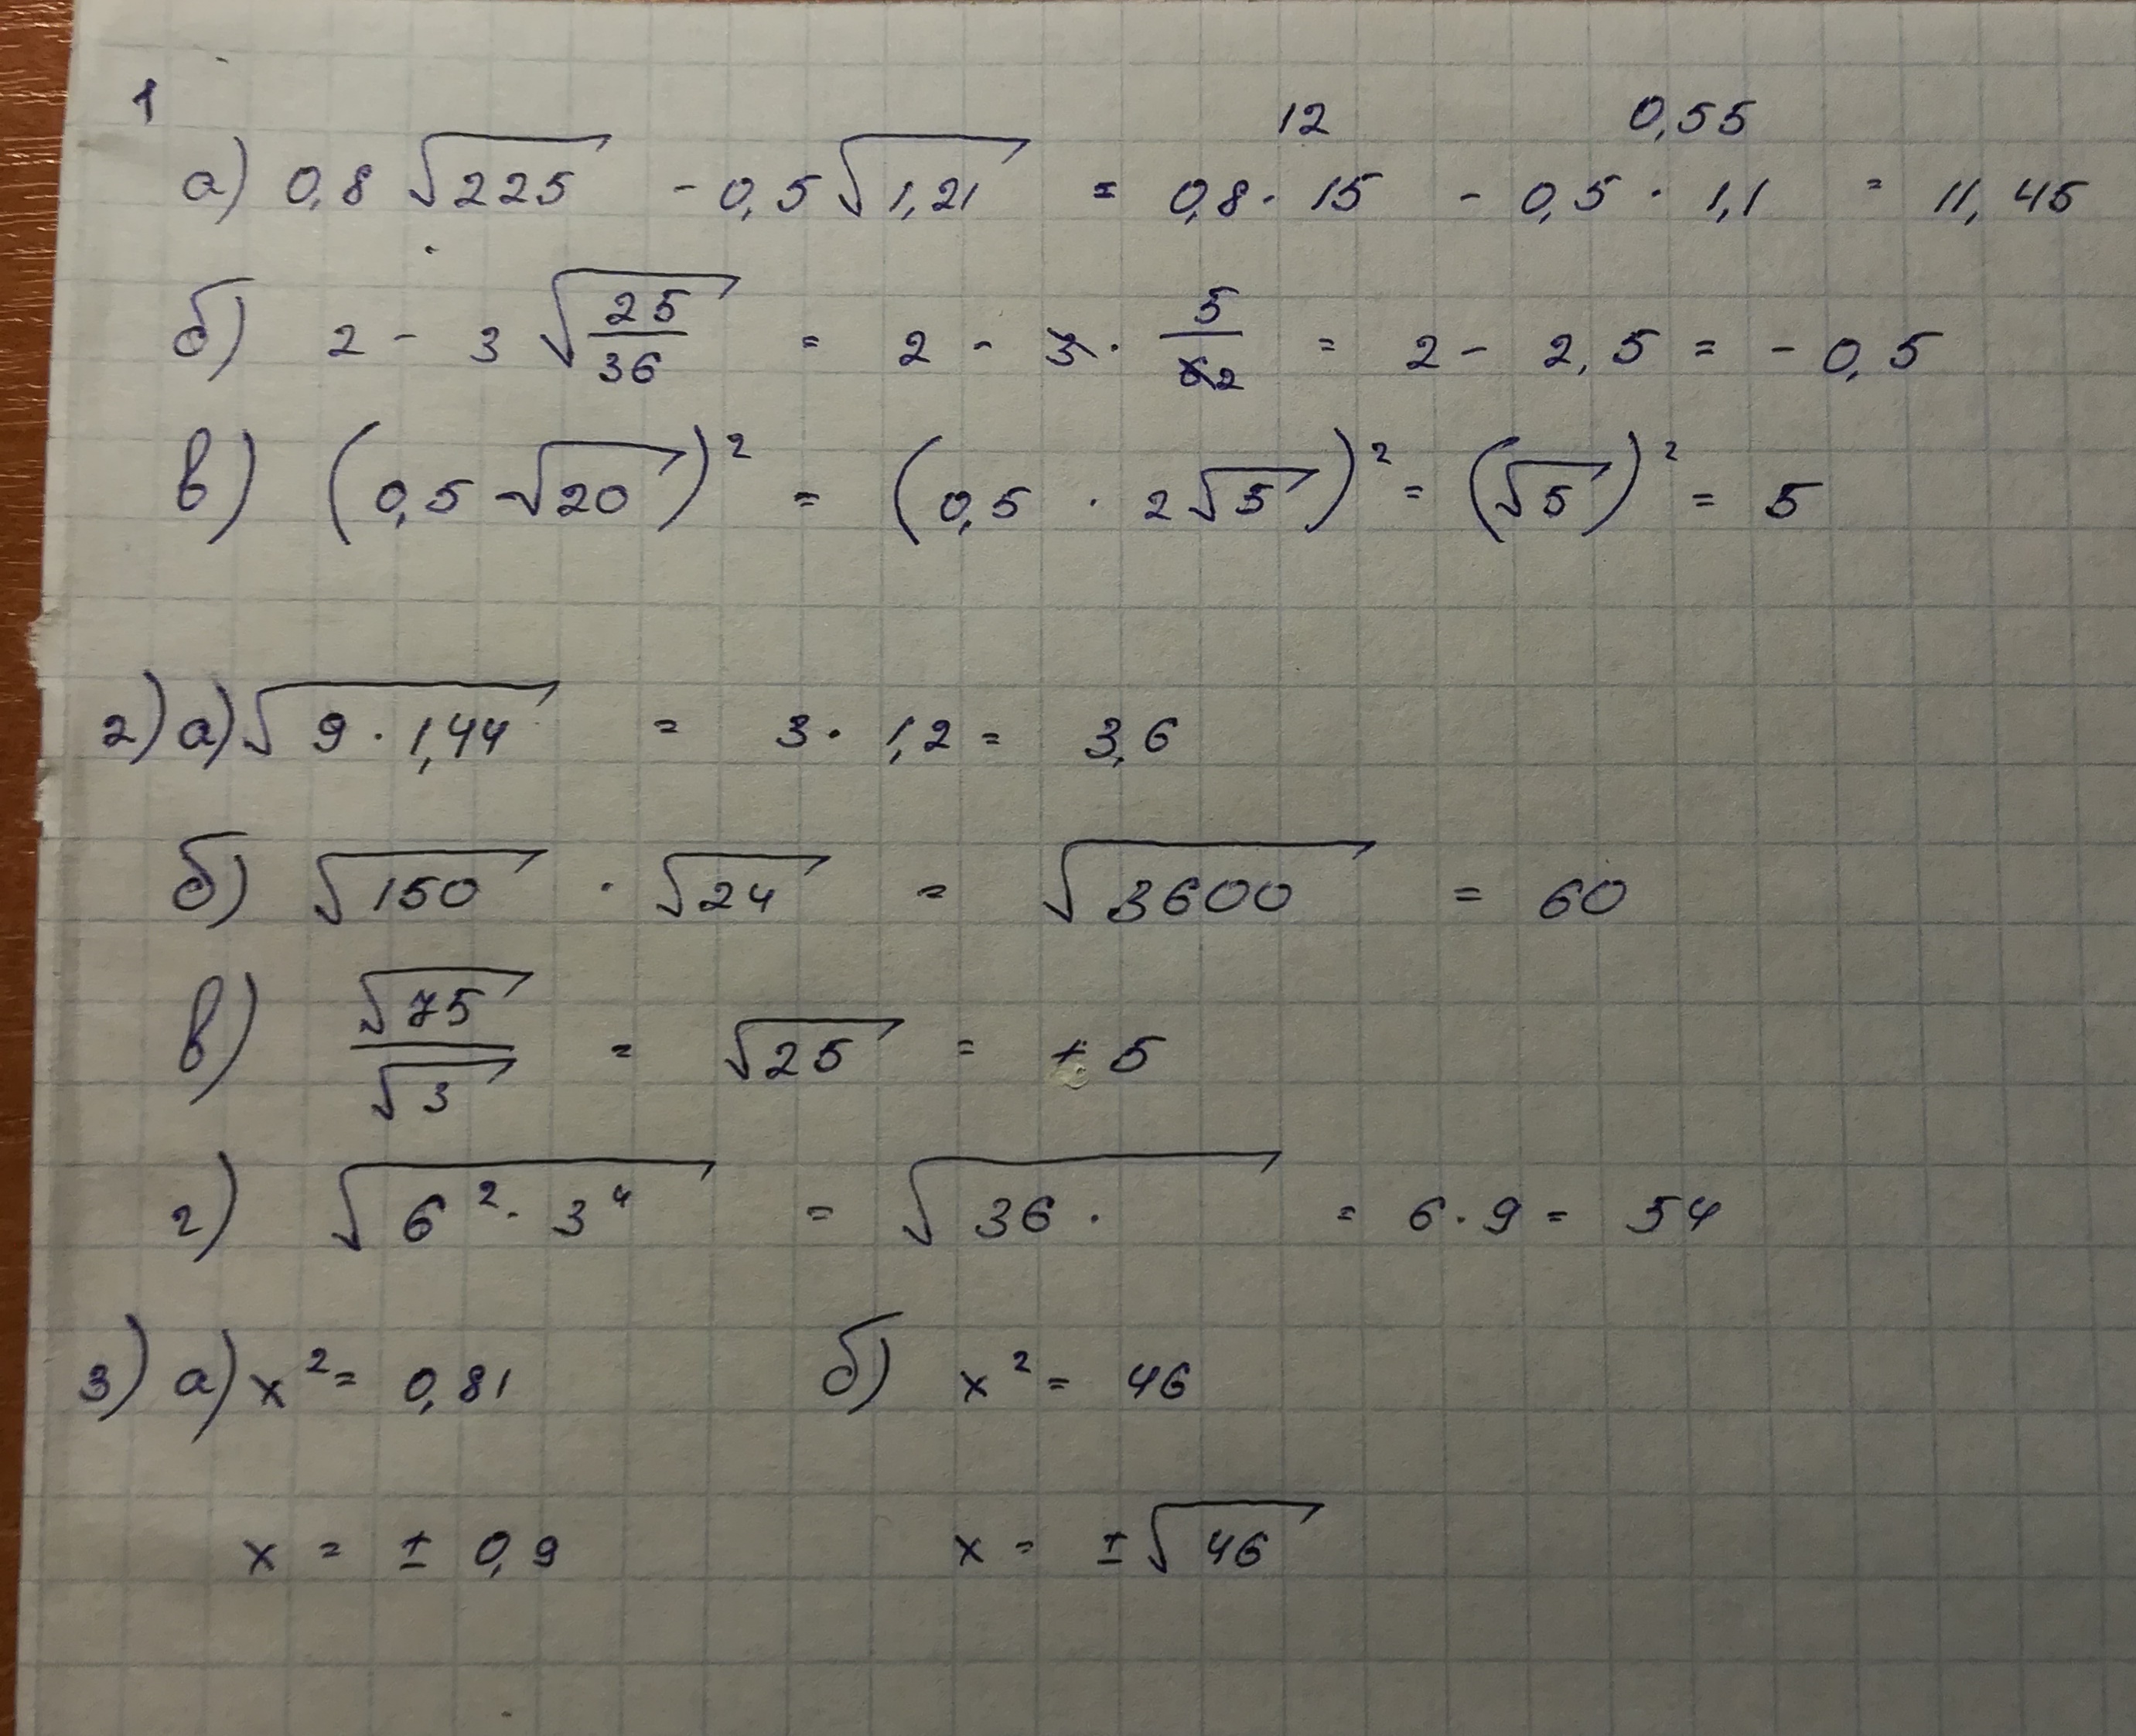 1
12 0,55
а) 0,8 √225 - 0,5 √1,21 = 0,8 · 15 - 0,5 · 1,1 = 11,45
б) 2 - 3 √(25/36) = 2 - 3 · 5/6 2 = 2 - 2,5 = - 0,5
в) (0,5 √20)² = (0,5 · 2√5)² = (√5)² = 5
2) а) √(9 · 1,44) = 3 · 1,2 = 3,6
б) √150 · √24 = √3600 = 60
в) √75/√3 = √25 = + 5
г) √(6² · 3⁴) = √(36 · ) = 6 · 9 = 54
3) а) x² = 0,81 б) x² = 46
x = ± 0,9 x = ±√46